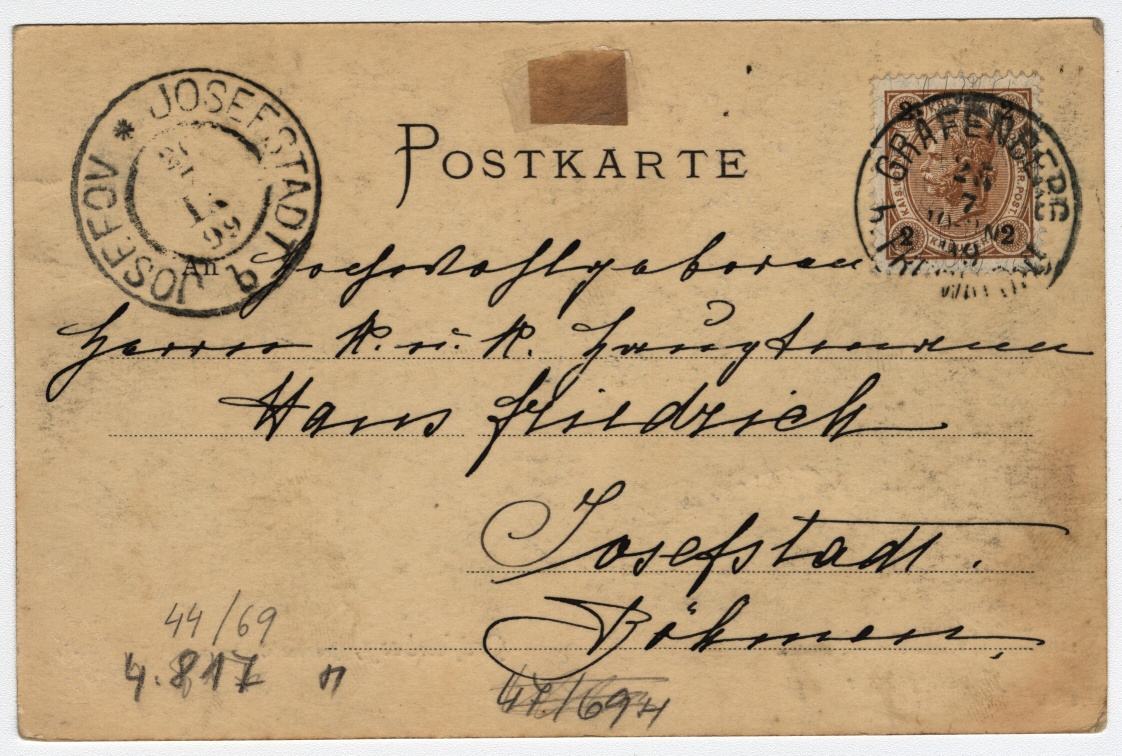 JOSEFSTADT
JOSEFOV
99
b
POSTKARTE
GRÄFENBERG
2
7
2 KREUZER 2
An Hochwohlgeboren
Herrn K. u. K. Hauptmann
Hans Friedrich
Josefstadt.
Böhmen
44/69
4.817
47/69